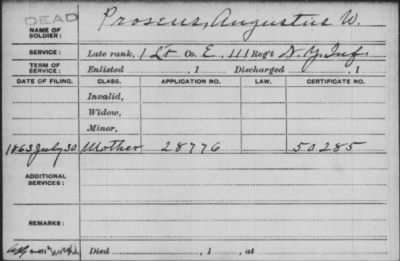 DEAD
NAME OF SOLDIER: Proseus, Augustus W.
SERVICE: Late rank, 1 Lt Co. E, 111 Reg't N. Y. Inf.
TERM OF SERVICE: Enlisted , 1 Discharged , 1
DATE OF FILING. CLASS. APPLICATION NO. LAW. CERTIFICATE NO.
Invalid,
Widow,
Minor,
1863 July 30 Mother 28776 50285
ADDITIONAL SERVICES:
REMARKS:
Died , 1 , at